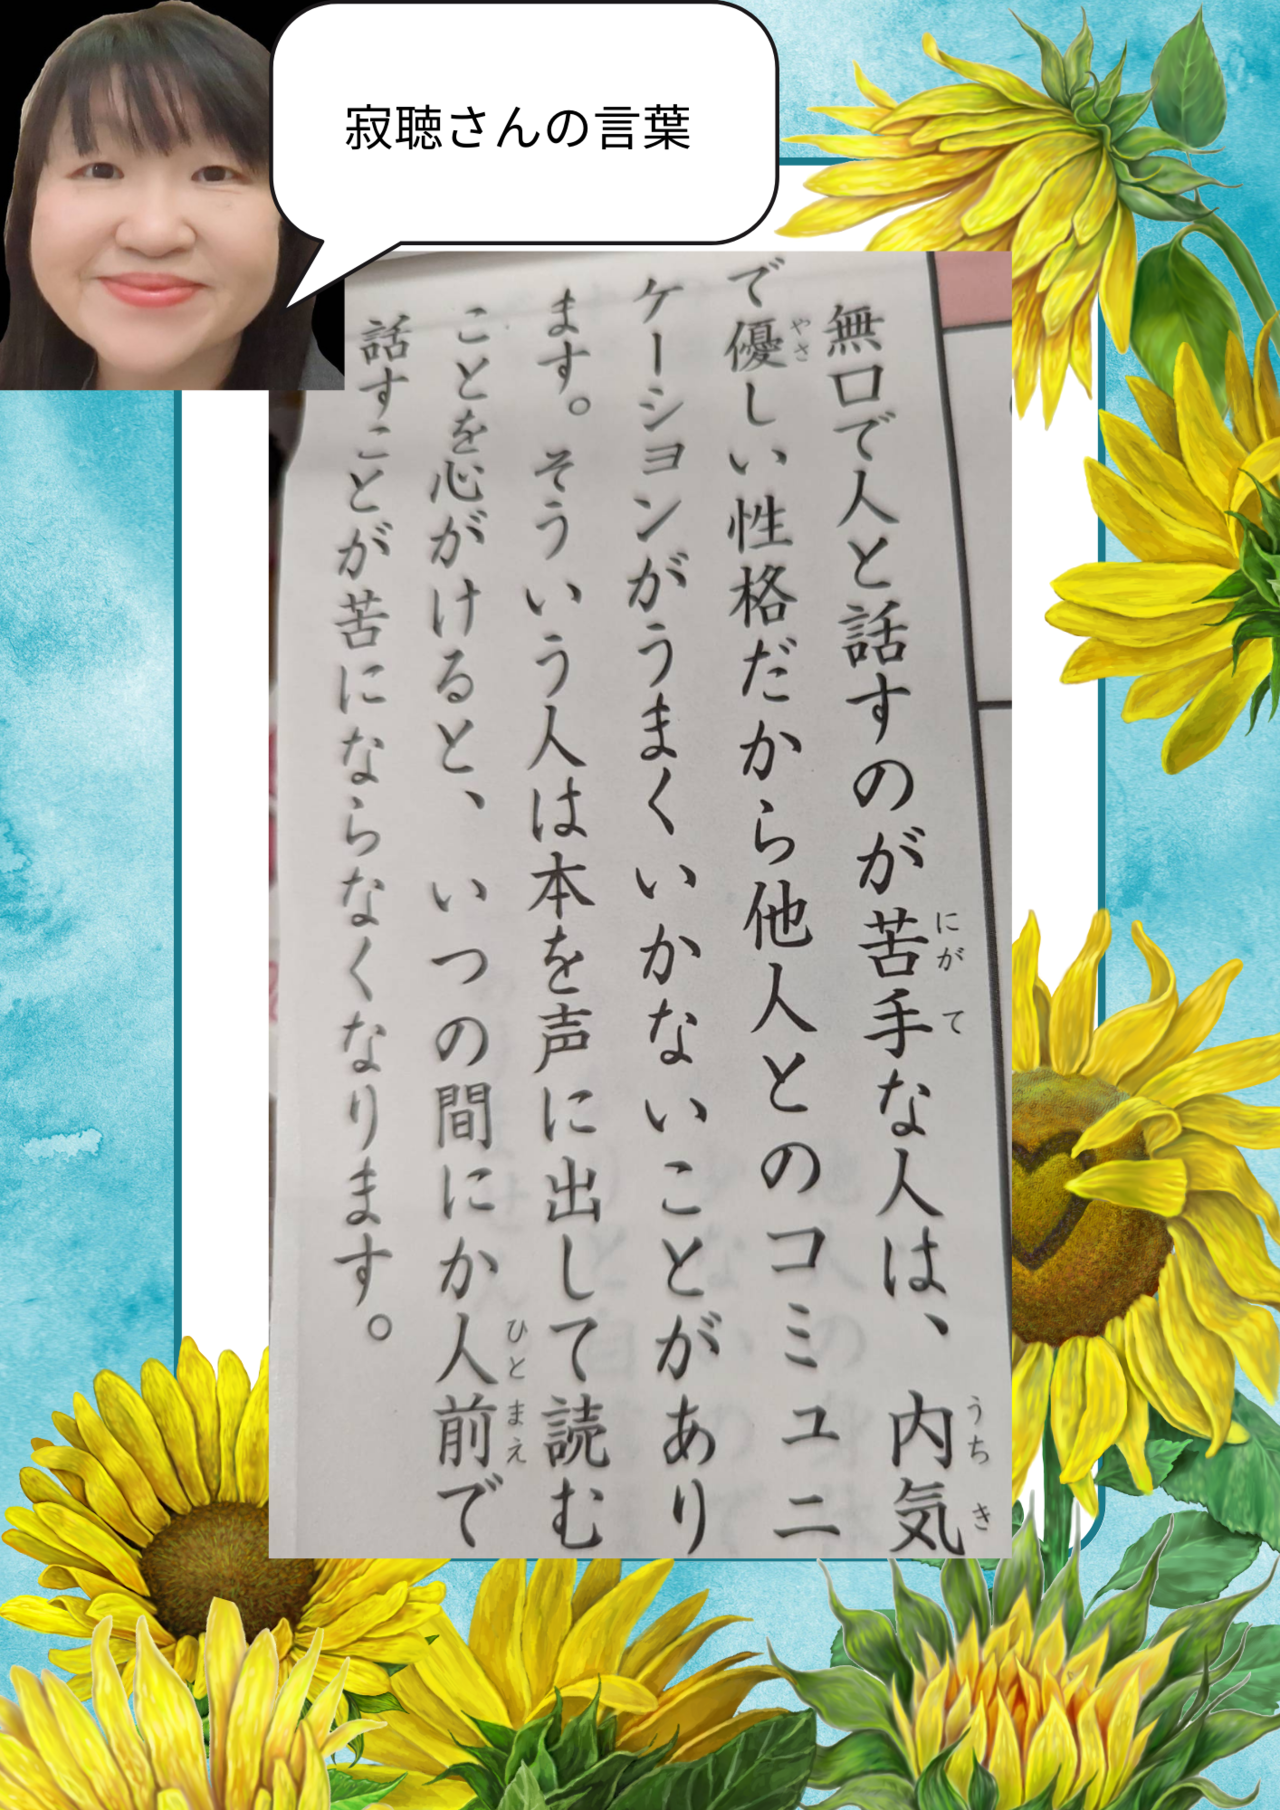 寂聴さんの言葉
無口で人と話すのが苦手な人は、内気
にがて
うちき
で優しい性格だから他人とのコミュニ
やさ
ケーションがうまくいかないことがあり
ます。そういう人は本を声に出して読む
ことを心がけると、いつの間にか人前で
ひとまえ
話すことが苦にならなくなります。